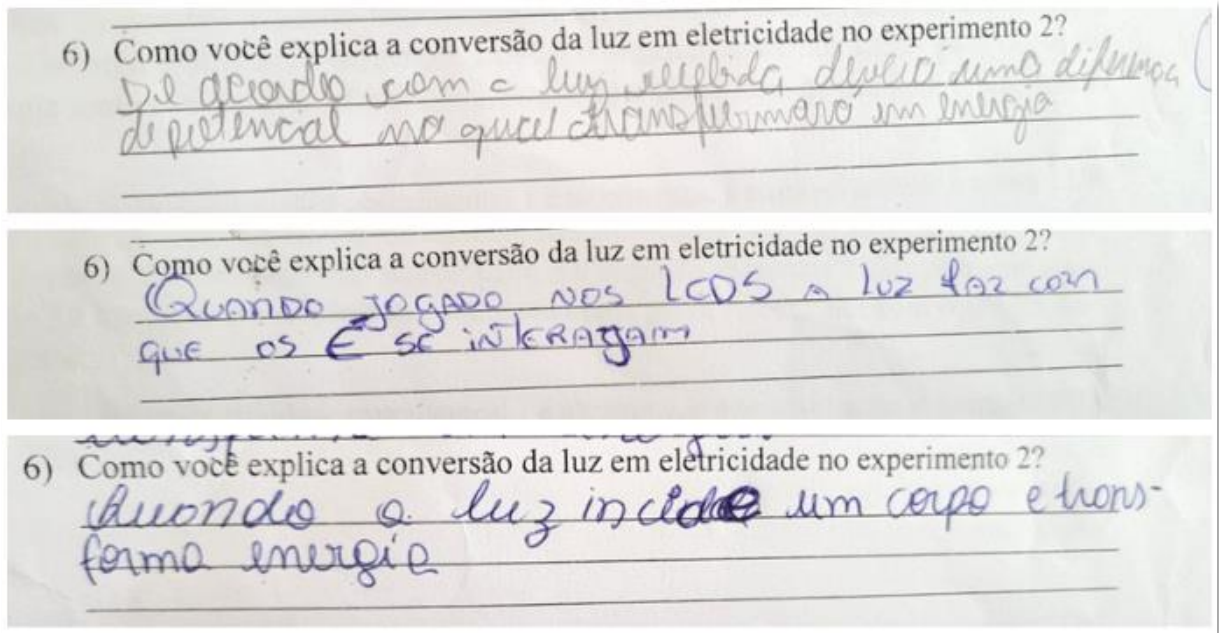 6) Como você explica a conversão da luz em eletricidade no experimento 2?
De acordo com a luz recebida uma diferença
de potencial no qual transformaro em energia
6) Como você explica a conversão da luz em eletricidade no experimento 2?
Quando jogado nos LCDS a luz faz com
que os E⁻ se interagam
6) Como você explica a conversão da luz em eletricidade no experimento 2?
Quando a luz incide um corpo e trans-
forma energia